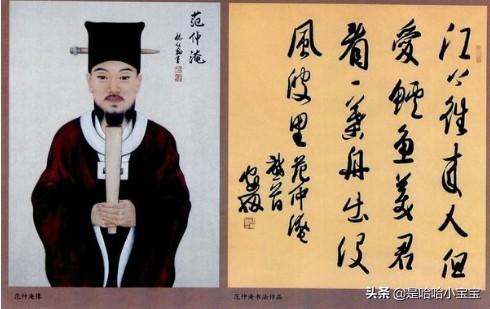 范仲淹
江上往来人但
愛鱸魚美君
看一葉舟出没
風波里
范仲淹
范仲淹像
范仲淹书法作品
头条 @是哈哈小宝宝